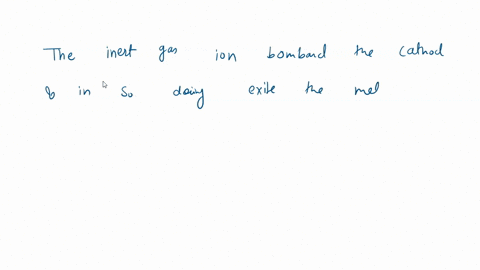 The inert gas ion bombard the cathod
& in so doing exite the mel